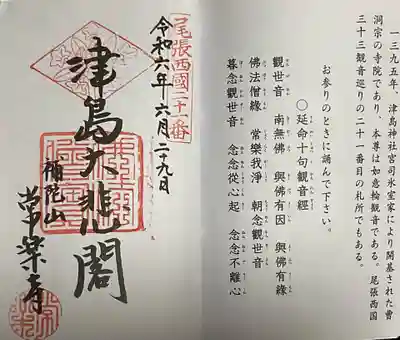 一三九五年、津島神社宮司氷室家により開基された曹
洞宗の寺院であり、本尊は如意輪観音である。尾張西国
三十三観音巡りの二十一番目の札所でもある。
お参りのときに誦んで下さい。
〇延命十句觀音經
觀世音 南無佛 與佛有因 與佛有緣
佛法僧緣 常樂我淨 朝念觀世音
暮念觀世音 念念從心起 念念不離心
尾張西國二十一番
令和六年六月二十九日
津島大悲閣
補陀山
常樂寺